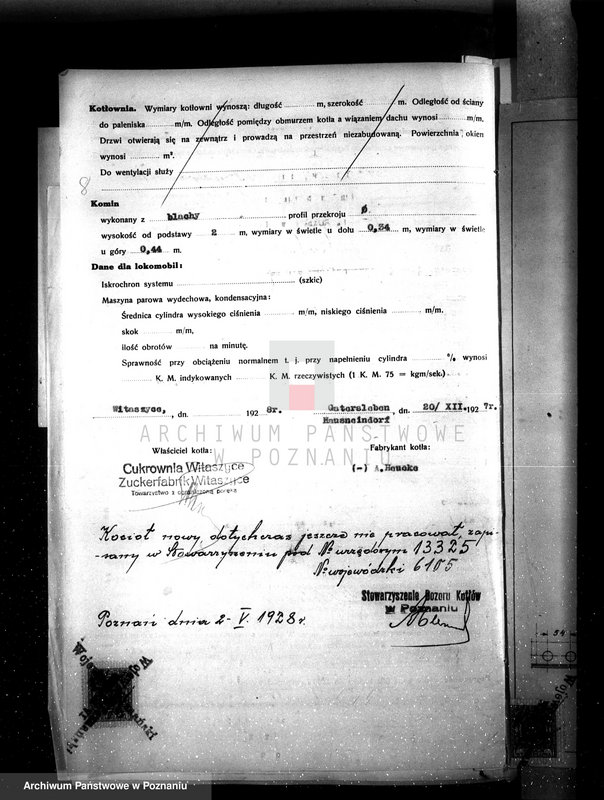 Kotłownia. Wymiary kotłowni wynoszą: długość ........ m, szerokość ........ m. Odległość od ściany
do paleniska ........ m/m. Odległość pomiędzy obmurzem kotła a wiązaniem dachu wynosi ........ m/m.
Drzwi otwierają się na zewnątrz i prowadzą na przestrzeń niezabudowaną. Powierzchnia okien
wynosi ........ m².
Do wentylacji służy
8
Komin
wykonany z blachy profil przekroju Ø
wysokość od podstawy 2 m, wymiary w świetle u dołu 0,34 m, wymiary w świetle
u góry 0,44 m.
Dane dla lokomobil:
Iskrochron systemu ........ (szkic)
Maszyna parowa wydechowa, kondensacyjna:
Średnica cylindra wysokiego ciśnienia ........ m/m, niskiego ciśnienia ........ m/m.
skok ........ m/m,
ilość obrotów ........ na minutę.
Sprawność przy obciążeniu normalnem t. j. przy napełnieniu cylindra ........ % wynosi
........ K. M. indykowanych ........ K. M. rzeczywistych (1 K. M. 75 = kgm/sek.)
Witaszyce, dn. ........ 1928r. Gatersleben, dn. 20/XII. 1927r.
Hausneindorf
ARCHIWUM PAŃSTWOWE
W POZNANIU
Właściciel kotła: Fabrykant kotła:
Cukrownia Witaszyce (-) A.Heucke
Zuckerfabrik Witaszyce
Towarzystwo z ograniczoną poręką
Kocioł nowy, dotychczas jeszcze nie pracował, zapi-
-sany w Stowarzyszeniu pod № urzędowym 13325
№ wojewódzki 6105
Stowarzyszenie Dozoru Kotłów
w Poznaniu
Poznań dnia 2-V. 1928 r.
54
Archiwum Państwowe w Poznaniu